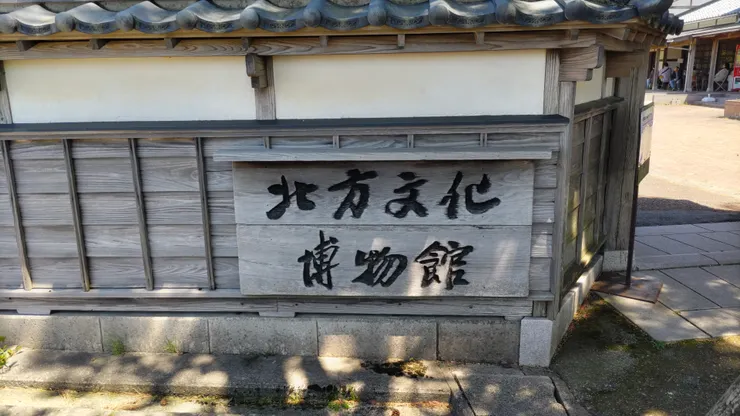 北方文化
博物館